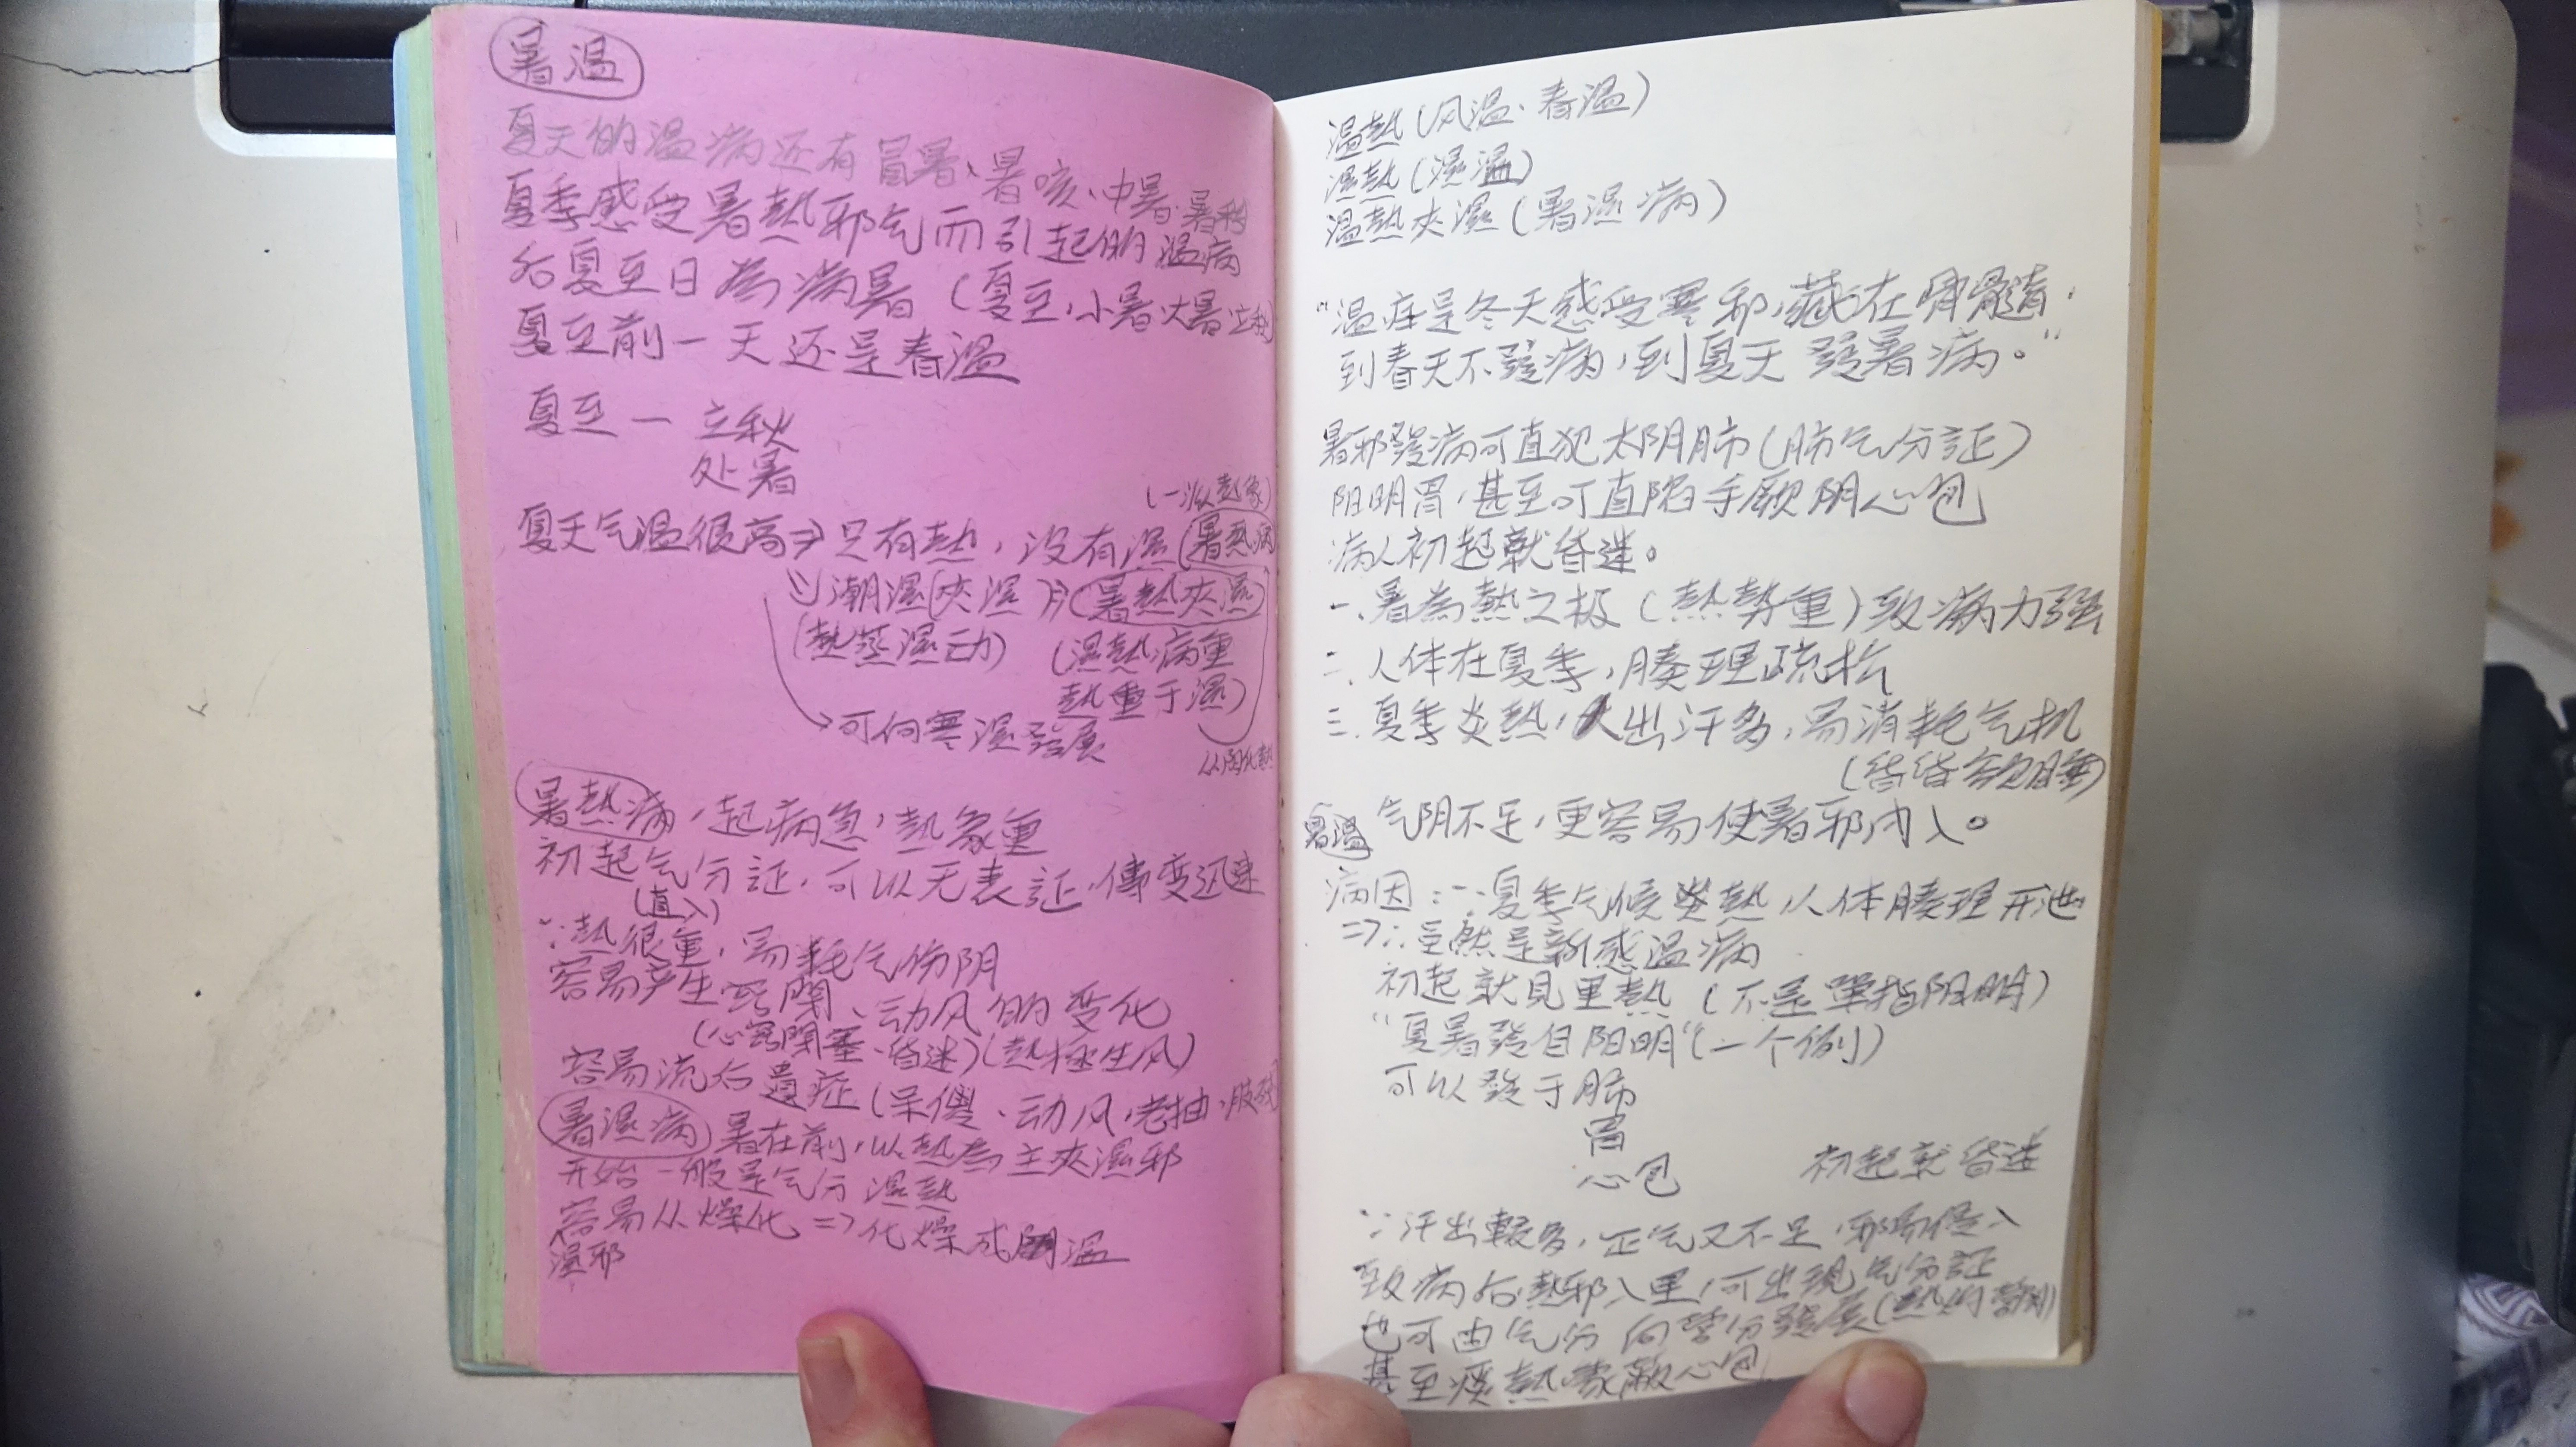 暑温
夏天的温病还有冒暑、暑咳、中暑、暑秽
夏季感受暑熱邪气而引起的温病
后夏至日為病暑（夏至，小暑大暑立秋）
夏至前一天还是春温
夏至一 立秋
处暑
（一派熱象）
夏天气温很高⇒只有熱，没有濕 暑熱病
⇓潮濕(夹濕)⇒(暑熱夹濕)
(熱蒸濕动) (濕熱病重
熱重于濕)
→可向寒濕發展
从阳化熱
暑熱病，起病急，熱象重
初起气分証，可以无表証，傳变迅速
(直入)
∵熱很重，易耗气伤阴
容易产生窍閉、动风的变化
(心窍閉塞、昏迷)(熱極生风)
容易流后遺症(呆傻、动风，老抽，
暑濕病 暑在前，以熱為主夹濕邪
开始一般是气分濕熱
容易从燥化⇒化燥成温
濕邪
温熱(风温、春温)
濕熱(濕温)
温熱夹濕(暑濕病)
“温症是冬天感受寒邪，藏在骨髓，
到春天不發病，到夏天發暑病。”
暑邪發病可直犯太阴肺(肺气分証)
阳明胃，甚至可直陷手厥阴心包
病人初起就昏迷。
一、暑為熱之极(熱勢重)致病力强
二、人体在夏季，腠理疏松
三、夏季炎熱，人出汗多，易消耗气机
(昏昏欲睡)
气阴不足，更容易使暑邪内入。
暑温
病因：一、夏季气候炎熱 人体腠理开泄
⇒∴虽然是新感温病
初起就見里熱(不是單指阳明)
“夏暑發自阳明”(一个例)
可以發于肺
胃
心包 初起就昏迷
∵汗出較多，正气又不足，邪易侵入
致病后熱邪入里，可出現气分証
也可由气分向营分發展(熱灼营阴)
甚至痰熱蒙蔽心包